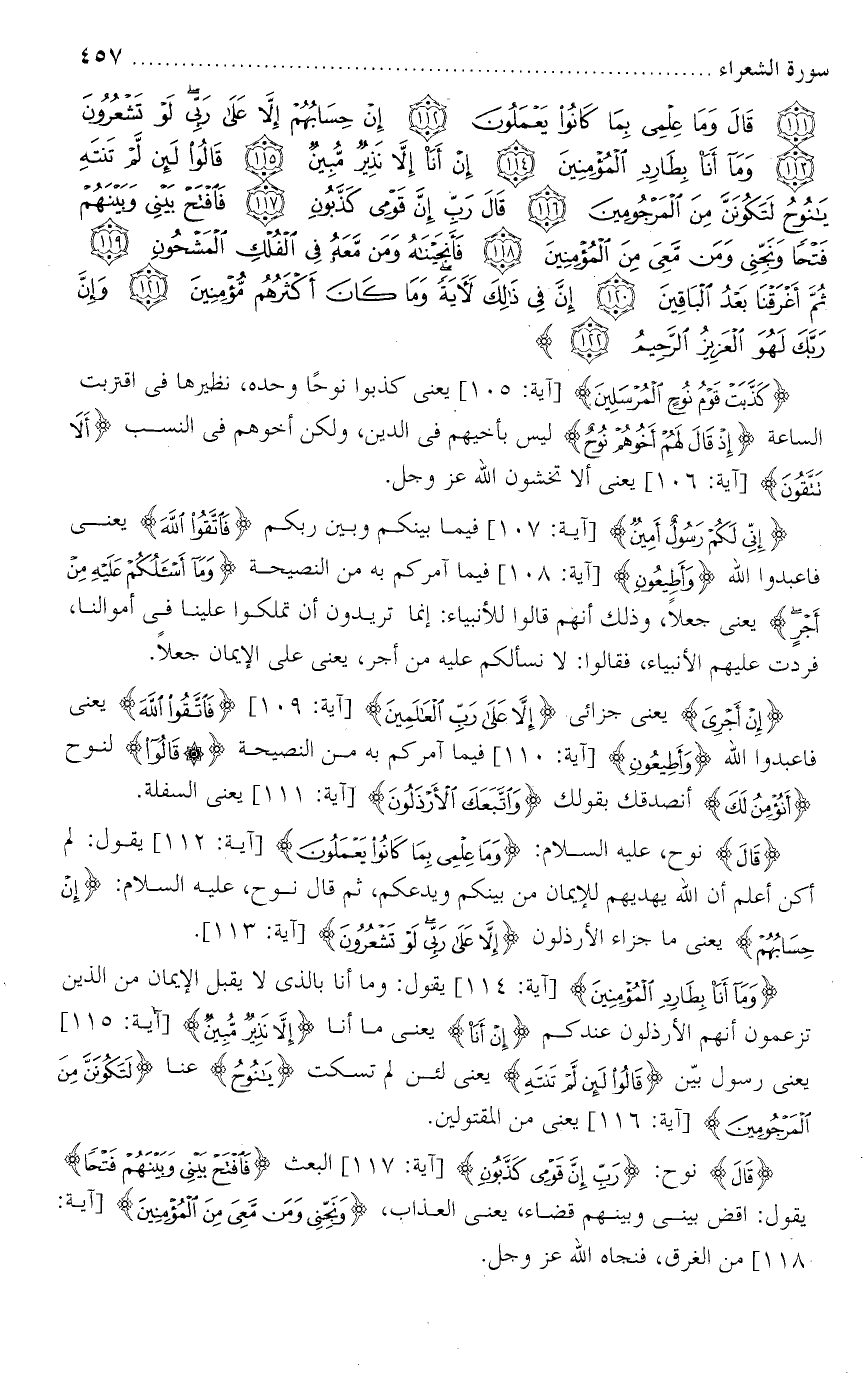 سورة الشعراء ........................................................................ ٤٥٧
(١١١) قَالَ وَمَا عِلْمِى بِمَا كَانُوا۟ يَعْمَلُونَ (١١٢) إِنْ حِسَابُهُمْ إِلَّا عَلَىٰ رَبِّى ۖ لَوْ تَشْعُرُونَ
(١١٣) وَمَآ أَنَا۠ بِطَارِدِ ٱلْمُؤْمِنِينَ (١١٤) إِنْ أَنَا۠ إِلَّا نَذِيرٌ مُّبِينٌ (١١٥) قَالُوا۟ لَئِن لَّمْ تَنتَهِ
يَـٰنُوحُ لَتَكُونَنَّ مِنَ ٱلْمَرْجُومِينَ (١١٦) قَالَ رَبِّ إِنَّ قَوْمِى كَذَّبُونِ (١١٧) فَٱفْتَحْ بَيْنِى وَبَيْنَهُمْ
فَتْحًا وَنَجِّنِى وَمَن مَّعِىَ مِنَ ٱلْمُؤْمِنِينَ (١١٨) فَأَنجَيْنَـٰهُ وَمَن مَّعَهُۥ فِى ٱلْفُلْكِ ٱلْمَشْحُونِ (١١٩)
ثُمَّ أَغْرَقْنَا بَعْدُ ٱلْبَاقِينَ (١٢٠) إِنَّ فِى ذَٰلِكَ لَـَٔايَةً ۖ وَمَا كَانَ أَكْثَرُهُم مُّؤْمِنِينَ (١٢١) وَإِنَّ
رَبَّكَ لَهُوَ ٱلْعَزِيزُ ٱلرَّحِيمُ (١٢٢) ﴾
﴿كَذَّبَتْ قَوْمُ نُوحٍ ٱلْمُرْسَلِينَ﴾ [آية: ١٠٥] يعنى كذبوا نوحًا وحده، نظيرها فى اقتربت
الساعة ﴿إِذْ قَالَ لَهُمْ أَخُوهُمْ نُوحٌ﴾ ليس بأخيهم فى الدين، ولكن أخوهم فى النسب ﴿أَلَا
تَتَّقُونَ﴾ [آية: ١٠٦] يعنى ألا تخشون الله عز وجل.
﴿إِنِّى لَكُمْ رَسُولٌ أَمِينٌ﴾ [آية: ١٠٧] فيما بينكم وبين ربكم ﴿فَٱتَّقُوا۟ ٱللَّهَ﴾ يعنى
فاعبدوا الله ﴿وَأَطِيعُونِ﴾ [آية: ١٠٨] فيما آمركم به من النصيحة ﴿وَمَآ أَسْـَٔلُكُمْ عَلَيْهِ مِنْ
أَجْرٍ ۖ﴾ يعنى جعلاً، وذلك أنهم قالوا للأنبياء: إنما تريدون أن تملكوا علينا فى أموالنا،
فردت عليهم الأنبياء، فقالوا: لا نسألكم عليه من أجر، يعنى على الإيمان جعلاً.
﴿إِنْ أَجْرِىَ﴾ يعنى جزائى ﴿إِلَّا عَلَىٰ رَبِّ ٱلْعَـٰلَمِينَ﴾ [آية: ١٠٩] ﴿فَٱتَّقُوا۟ ٱللَّهَ﴾ يعنى
فاعبدوا الله ﴿وَأَطِيعُونِ﴾ [آية: ١١٠] فيما آمركم به من النصيحة ﴿۞ قَالُوٓا۟﴾ لنوح
﴿أَنُؤْمِنُ لَكَ﴾ أنصدقك بقولك ﴿وَٱتَّبَعَكَ ٱلْأَرْذَلُونَ﴾ [آية: ١١١] يعنى السفلة.
﴿قَالَ﴾ نوح، عليه السلام: ﴿وَمَا عِلْمِى بِمَا كَانُوا۟ يَعْمَلُونَ﴾ [آية: ١١٢] يقول: لم
أكن أعلم أن الله يهديهم للإيمان من بينكم ويدعكم، ثم قال نوح، عليه السلام: ﴿إِنْ
حِسَابُهُمْ﴾ يعنى ما جزاء الأرذلون ﴿إِلَّا عَلَىٰ رَبِّى ۖ لَوْ تَشْعُرُونَ﴾ [آية: ١١٣].
﴿وَمَآ أَنَا۠ بِطَارِدِ ٱلْمُؤْمِنِينَ﴾ [آية: ١١٤] يقول: وما أنا بالذى لا يقبل الإيمان من الذين
تزعمون أنهم الأرذلون عندكم ﴿إِنْ أَنَا۠﴾ يعنى ما أنا ﴿إِلَّا نَذِيرٌ مُّبِينٌ﴾ [آية: ١١٥]
يعنى رسول بيّن ﴿قَالُوا۟ لَئِن لَّمْ تَنتَهِ﴾ يعنى لئن لم تسكت ﴿يَـٰنُوحُ﴾ عنا ﴿لَتَكُونَنَّ مِنَ
ٱلْمَرْجُومِينَ﴾ [آية: ١١٦] يعنى من المقتولين.
﴿قَالَ﴾ نوح: ﴿رَبِّ إِنَّ قَوْمِى كَذَّبُونِ﴾ [آية: ١١٧] البعث ﴿فَٱفْتَحْ بَيْنِى وَبَيْنَهُمْ فَتْحًا﴾
يقول: اقض بينى وبينهم قضاء، يعنى العذاب، ﴿وَنَجِّنِى وَمَن مَّعِىَ مِنَ ٱلْمُؤْمِنِينَ﴾ [آية:
١١٨] من الغرق، فنجاه الله عز وجل.